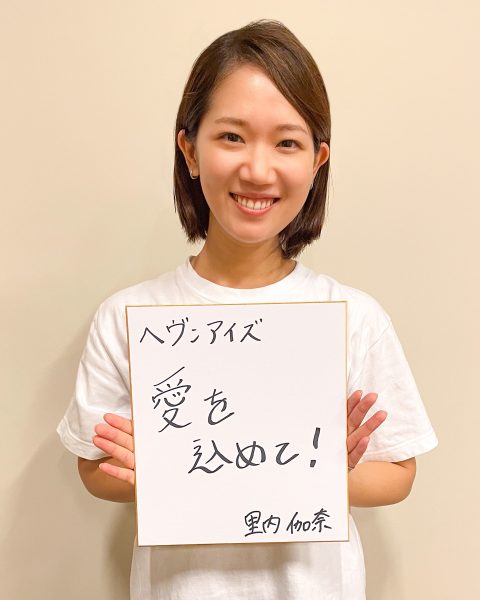 ヘヴンアイズ
愛を
込めて!
里内 伽奈